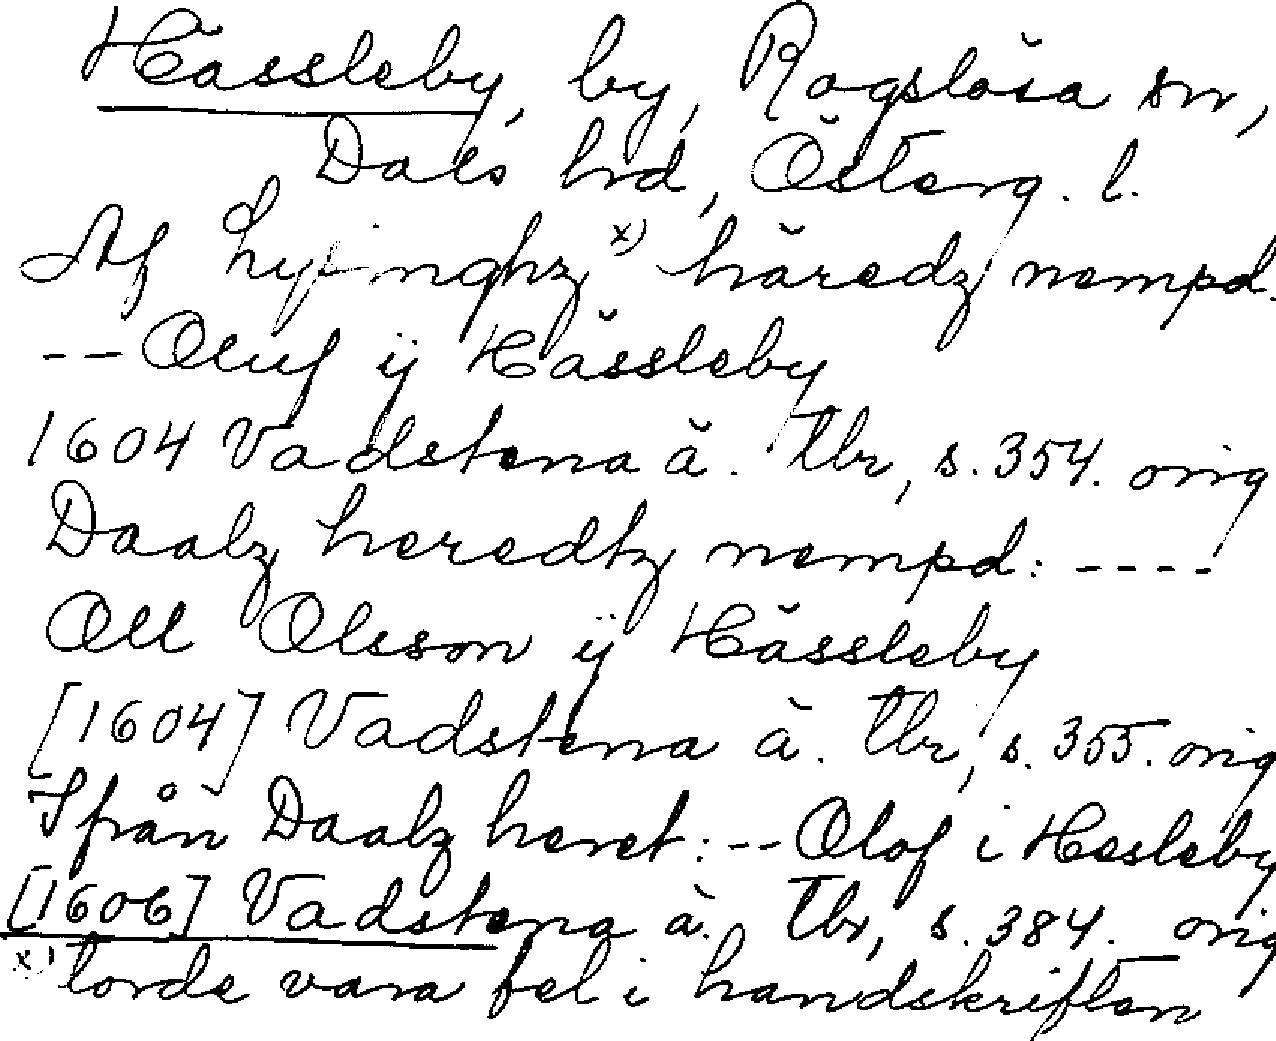 Hässleby, by, Rogslösa sn,
Dals hrd, Österg. l.
Af Lysinghz x) häredz nempd.
-- Oluf ÿ Hässleby
1604 Vadstena ä. tbr, s. 354. orig
Daalz heredtz nempd: ----
Oll Olsson ÿ Hässleby
[1604] Vadstena ä. tbr, s. 355. orig
Ifrån Daalz heret: -- Olof i Hesleby
[1606] Vadstena ä. tbr, s. 384. orig
x) torde vara fel i handskriften